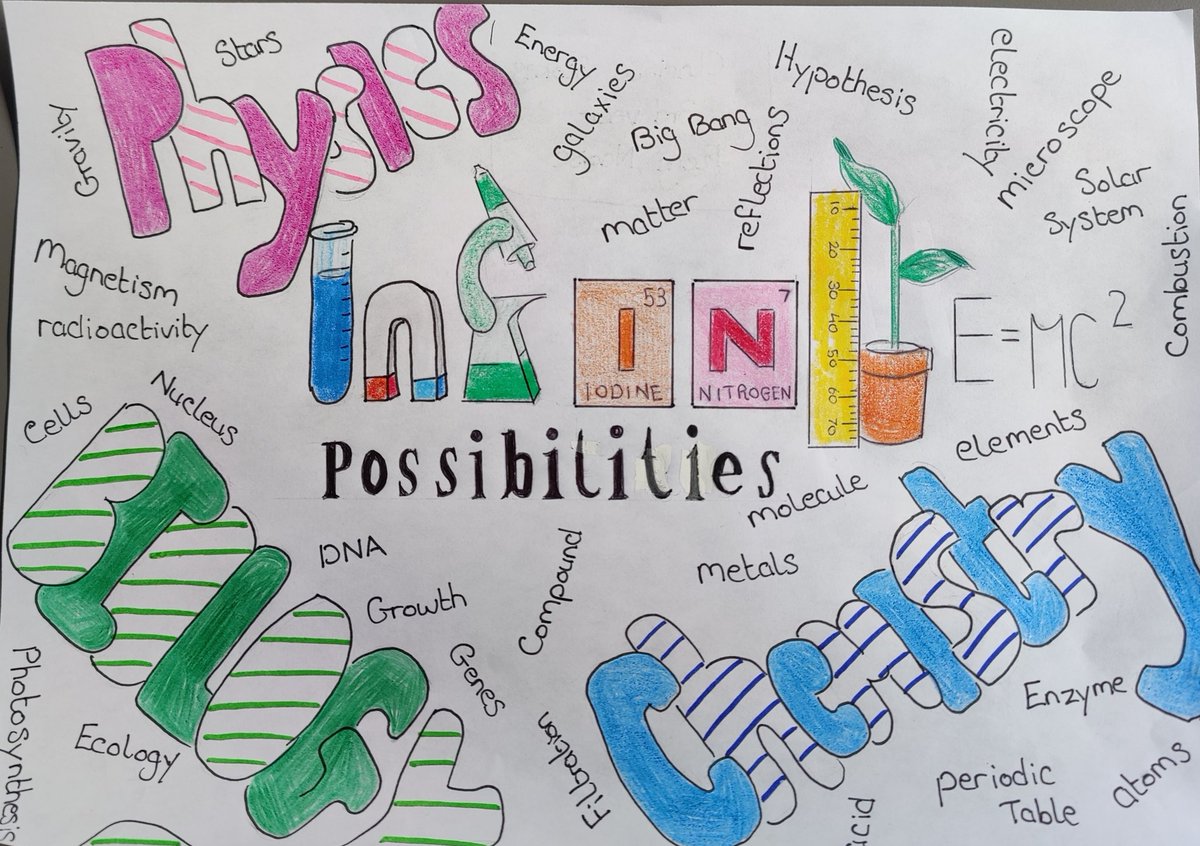 Physics
Stars
Energy
galaxies
Hypothesis
electricity
microscope
Gravity
Big Bang
reflections
matter
Solar
System
Combustion
Magnetism
radioactivity
53
I
IODINE
7
N
NITROGEN
10 20 30 40 50 60 70
E=MC²
Possibitities
Cells
Nucleus
Biology
DNA
Growth
Genes
Ecology
Photosynthesis
Compound
Filtration
molecule
elements
metals
Chemistry
Enzyme
periodic
Table
atoms
acid